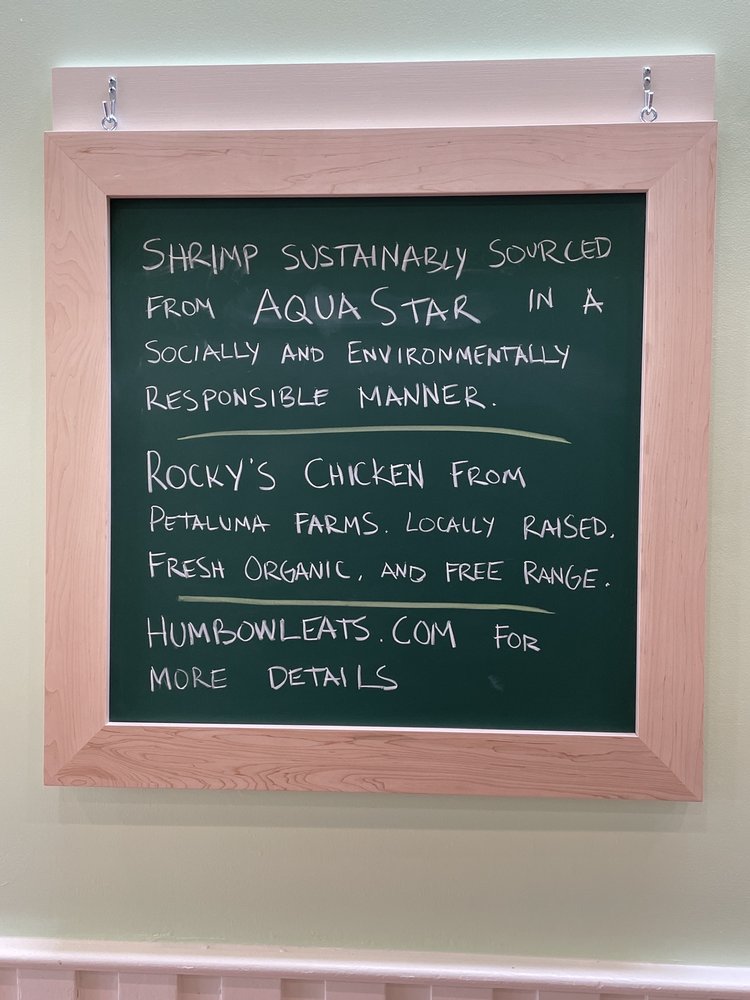 SHRIMP SUSTAINABLY SOURCED
FROM AQUA STAR IN A
SOCIALLY AND ENVIRONMENTALLY
RESPONSIBLE MANNER.
ROCKY'S CHICKEN FROM
PETALUMA FARMS. LOCALLY RAISED,
FRESH ORGANIC, AND FREE RANGE.
HUMBOWLEATS.COM FOR
MORE DETAILS